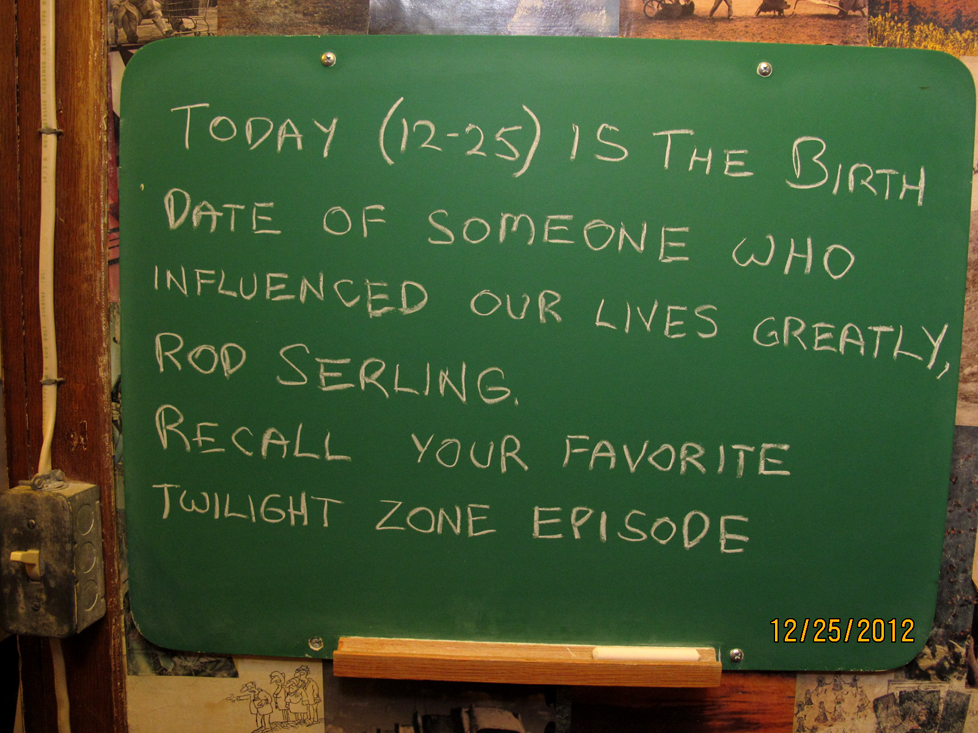 TODAY (12-25) IS THE BIRTH
DATE OF SOMEONE WHO
INFLUENCED OUR LIVES GREATLY,
ROD SERLING.
RECALL YOUR FAVORITE
TWILIGHT ZONE EPISODE
12/25/2012